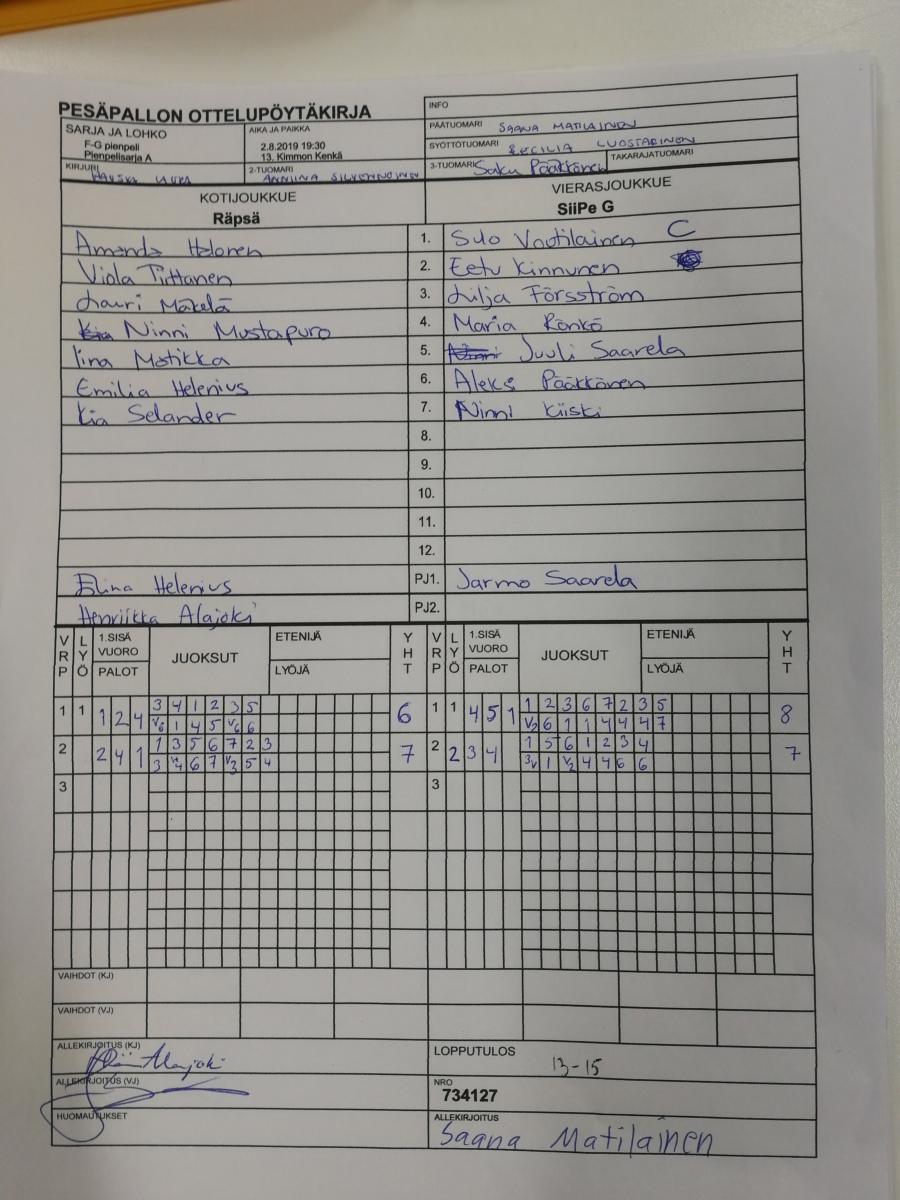 PESÄPALLON OTTELUPÖYTÄKIRJA
INFO
SARJA JA LOHKO
F-G pienpeli
Pienpelisarja A
AIKA JA PAIKKA
2.8.2019 19:30
13. Kimmon Kenkä
PÄÄTUOMARI SAANA MATILAINEN
SYÖTTÖTUOMARI CECILIA LUOSTARINEN
KIRJURI
2-TUOMARI ANNIINA SILVENNOINEN
3-TUOMARI Saku Pääkkönen TAKARAJATUOMARI
KOTIJOUKKUE
Räpsä
VIERASJOUKKUE
SiiPe G
Amanda Halonen 1. Sulo Voutilainen C
Viola Tiittanen 2. Eetu Kinnunen
Lauri Mäkelä 3. Lilja Försström
Ninni Mustapuro 4. Maria Rönkö
Iina Matikka 5. Juuli Saarela
Emilia Helenius 6. Aleksi Pääkkönen
Kia Selander 7. Ninni Kiiski
8.
9.
10.
11.
12.
Elina Helenius PJ1. Jarmo Saarela
Henriikka Alajoki PJ2.
VRP LYÖ 1.SISÄ VUORO PALOT JUOKSUT ETENIJÄ LYÖJÄ YHT VRP LYÖ 1.SISÄ VUORO PALOT JUOKSUT ETENIJÄ LYÖJÄ YHT
1 1 1 2 4 3 4 1 2 3 5 6 1 1 4 5 1 1 2 3 6 7 2 3 5 8
V6 1 4 5 V6 6 V2 6 1 1 4 4 4 7
2 2 4 1 1 3 5 6 7 2 3 7 2 2 3 4 1 5 6 1 2 3 4 7
3 V4 6 7 V3 5 4 3V 1 V2 4 4 6 6
3 3
VAIHDOT (KJ)
VAIHDOT (VJ)
ALLEKIRJOITUS (KJ) Alajoki
LOPPUTULOS 13-15
ALLEKIRJOITUS (VJ)
NRO
734127
HUOMAUTUKSET
ALLEKIRJOITUS
Saana Matilainen